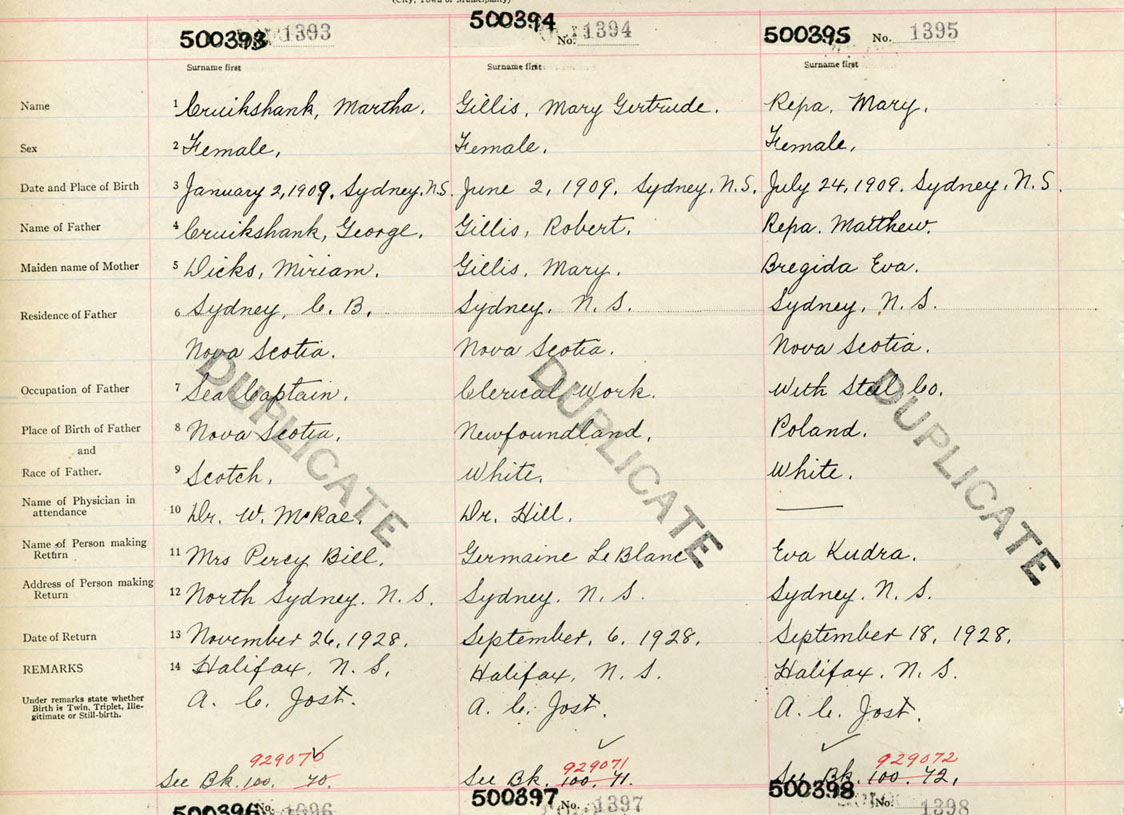 (City, Town or Municipality)
500393 1393 500394 No. 1394 500395 No. 1395
Surname first Surname first Surname first
Name 1 Cruikshank, Martha. Gillis, Mary Gertrude. Repa, Mary.
Sex 2 Female, Female, Female,
Date and Place of Birth 3 January 2, 1909. Sydney, N.S. June 2, 1909. Sydney, N.S. July 24, 1909. Sydney, N.S.
Name of Father 4 Cruikshank, George. Gillis, Robert. Repa. Matthew.
Maiden name of Mother 5 Dicks, Miriam. Gillis, Mary. Bregida Eva.
Residence of Father 6 Sydney, C. B. Sydney, N. S. Sydney, N. S.
Nova Scotia. Nova Scotia. Nova Scotia.
DUPLICATE DUPLICATE DUPLICATE
Occupation of Father 7 Sea Captain, Clerical Work. With Steel Co.
Place of Birth of Father 8 Nova Scotia, Newfoundland, Poland.
and
Race of Father. 9 Scotch. White. White.
Name of Physician in
attendance 10 Dr. W. McRae. Dr. Hill.
Name of Person making
Return 11 Mrs Percy Bill. Germaine LeBlanc Eva Kudra.
Address of Person making
Return 12 North Sydney. N. S. Sydney. N. S. Sydney. N. S.
Date of Return 13 November 26, 1928. September. 6, 1928. September 18, 1928.
REMARKS 14 Halifax, N. S. Halifax, N. S. Halifax, N. S.
Under remarks state whether
Birth is Twin, Triplet, Ille-
gitimate or Still-birth.
A. C. Jost. A. C. Jost. A. C. Jost.
929070 929071 929072
See Bk. 100. 70. See Bk. 100. 71. See Bk. 100. 72.
500396 No. 1396 500397 No. 1397 500398 No. 1398